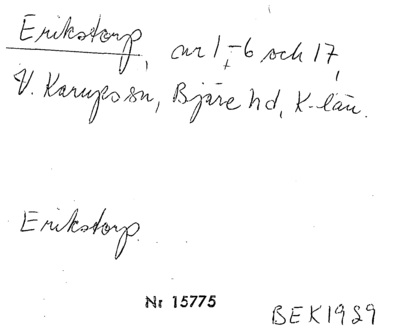 Erikstorp, nr 1-6 och 17,
V. Karups sn, Bjäre hd, K-län.
Erikstorp
Nr 15775
BEK1989